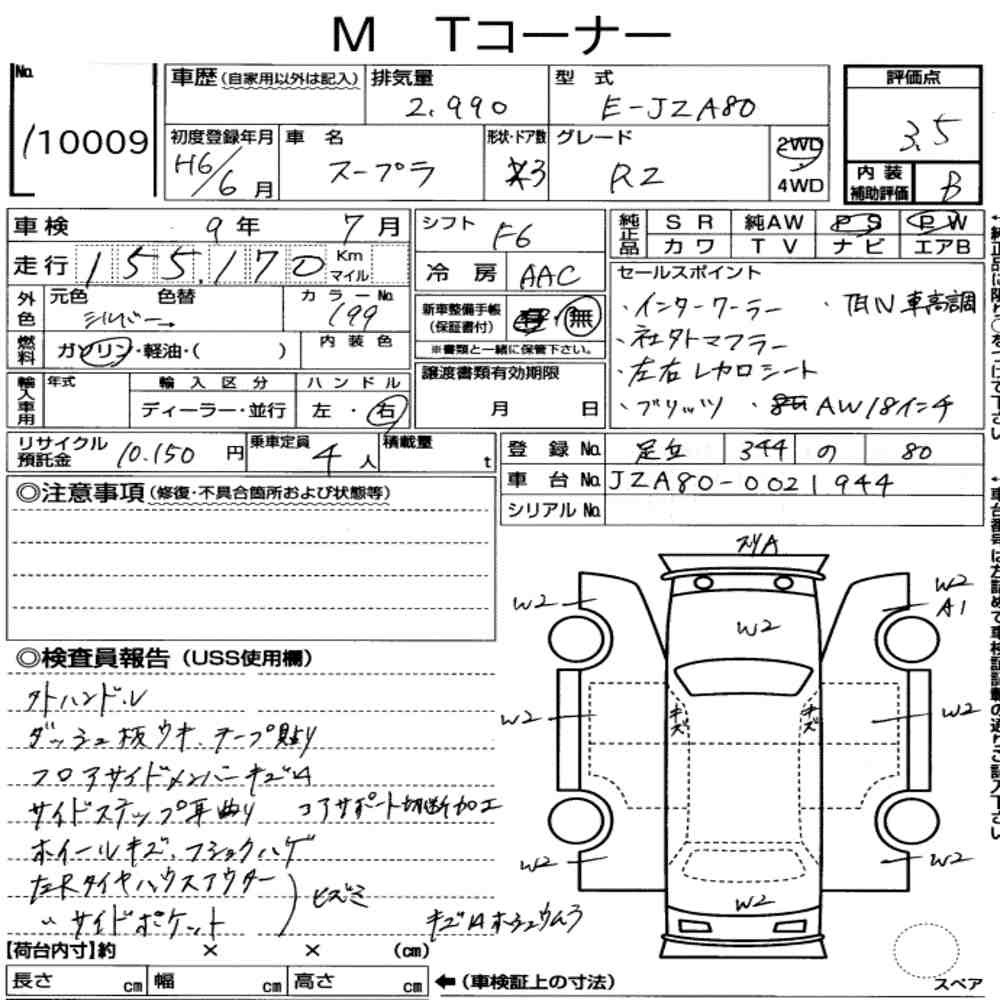 M Tコーナー
No. 110009
車歴 (自家用以外は記入)
排気量 2.990
型式 E-JZA80
評価点 3.5
初度登録年月 H6/6月
車名 スープラ
形状・ドア数 3
グレード RZ
2WD
4WD
内装補助評価 B
車検 9年 7月
シフト F6
純正品 SR 純AW PS PW
カワ TV ナビ エアB
走行 155,170 Km マイル
冷房 AAC
セールスポイント
・インタークーラー ・TEIN 車高調
・社外マフラー
・左右レカロシート
・ブリッツ ・ AW18インチ
外色 元色 シルバー→ 色替
カラーNo. 199
新車整備手帳(保証書付) 有・無
※書類と一緒に保管下さい。
燃料 ガソリン・軽油・( )
内装色
譲渡書類有効期限
月 日
輸入車用 年式
輸入区分 ディーラー・並行
ハンドル 左・右
リサイクル預託金 10.150円
乗車定員 4人
積載量 t
登録No. 足立 344 の 80
車台No. JZA80-0021944
シリアルNo.
◎注意事項 (修復・不具合箇所および状態等)
◎検査員報告 (USS使用欄)
外ハンドル
ダッシュ板ウキ、テープ貼り
フロアサイドメンバーキズA
サイドステップ耳曲り コアサポート切断加工
ホイールキズ、フショクハゲ
左Rタイヤハウスアウター
〃 サイドポケット
ヒズミ
スリA
W2
W2
A1
W2
W2
キズ
キズ
W2
W2
W2
W2
スペア
【荷台内寸】約 × × (cm)
長さ cm 幅 cm 高さ cm ←(車検証上の寸法)
↑純正品に限り○をつけて下さい
↑車台番号は左詰めで車検証記載の通りご記入下さい